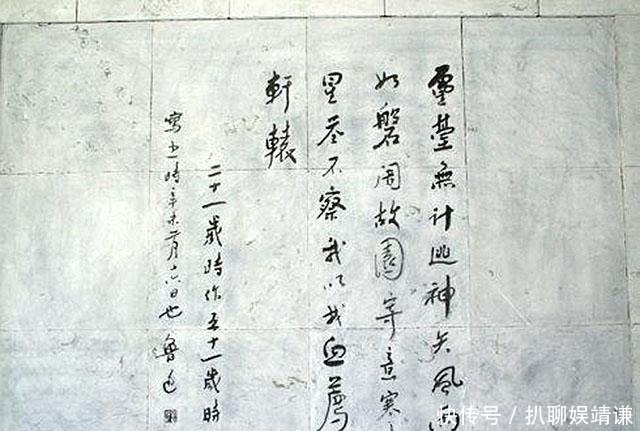 靈臺無計逃神矢風雨
如磐闇故園寄意寒
星荃不察我以我血薦
軒轅
二十一歲時作五十一歲時
寫之時辛未二月十六日也 魯迅
快传号 / 扒聊娱靖谦